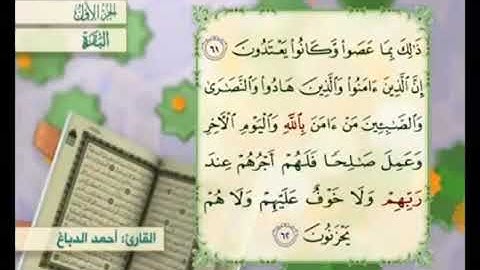 الجزء الأول
البقرة
ذَٰلِكَ بِمَا عَصَوا۟ وَّكَانُوا۟ يَعْتَدُونَ ﴿٦١﴾
إِنَّ ٱلَّذِينَ ءَامَنُوا۟ وَٱلَّذِينَ هَادُوا۟ وَٱلنَّصَٰرَىٰ
وَٱلصَّٰبِـِٔينَ مَنْ ءَامَنَ بِٱللَّهِ وَٱلْيَوْمِ ٱلْـَٔاخِرِ
وَعَمِلَ صَٰلِحًا فَلَهُمْ أَجْرُهُمْ عِندَ
رَبِّهِمْ وَلَا خَوْفٌ عَلَيْهِمْ وَلَا هُمْ
يَحْزَنُونَ ﴿٦٢﴾
القارئ: أحمد الدباغ